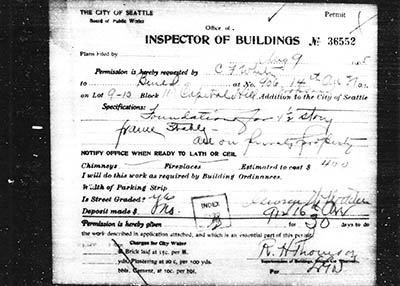 THE CITY OF SEATTLE
Board of Public Works
Permit
Office of
INSPECTOR OF BUILDINGS № 36552
Plans Filed by Aug 9
Permission is hereby requested by C F White
to Build at No. 926, 14th Ave N
on Lot 9-10 Block 11 Capitol Hill Addition to the City of Seattle
Specifications:
Foundation for 1½ story
frame stable
all on private property
NOTIFY OFFICE WHEN READY TO LATH OR CEIL
Chimneys Fireplaces Estimated to cost $ 400
I will do this work as required by Building Ordinances.
Width of Parking Strip
Is Street Graded? yes
Deposit made $ No.
INDEX
16th Ave
Permission is hereby given for 30 days to do
the work described in application attached, and which is an essential part of this permit.
Charges for City Water
Brick laid at 15c. per M.
Plastering at 20 c. per 100 yds.
bbls. Cement, at 10c. per bbl.
R. H. Thomson
Per